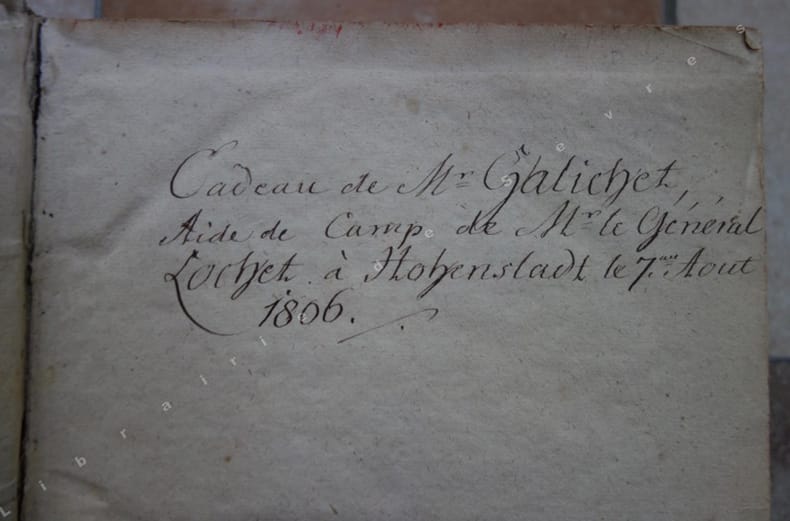 Cadeau de Mr Galichet,
Aide de Camp de Mr le Général
Lochet à Hohenstadt le 7.me Aout
1806.
Librairie de sevres